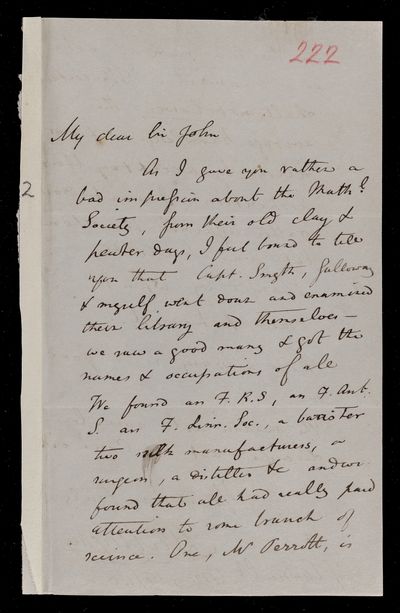 222
2
My dear Sir John
As I gave you rather a
bad impression about the Math.l
Society, from their old clay &
pewter days, I feel bound to tell
you that Capt. Smyth, Galloway
& myself went down and examined
their library and themselves —
we saw a good many & got the
names & occupations of all
We found an F.R.S, an F. Ant.
S. an F. Linn. Soc., a barrister
two silk manufacturers, a
surgeon, a distiller &c and we
found that all had really paid
attention to some branch of
science. One, Mr Perrott, is